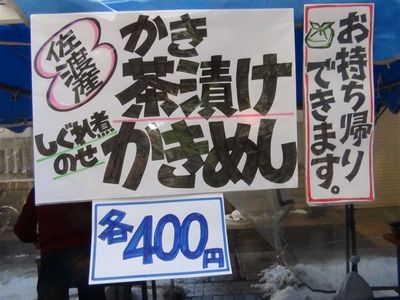 佐渡産
かき
茶漬け
しぐれ煮
のせ
かきめし
各400円
お持ち帰り
できます。